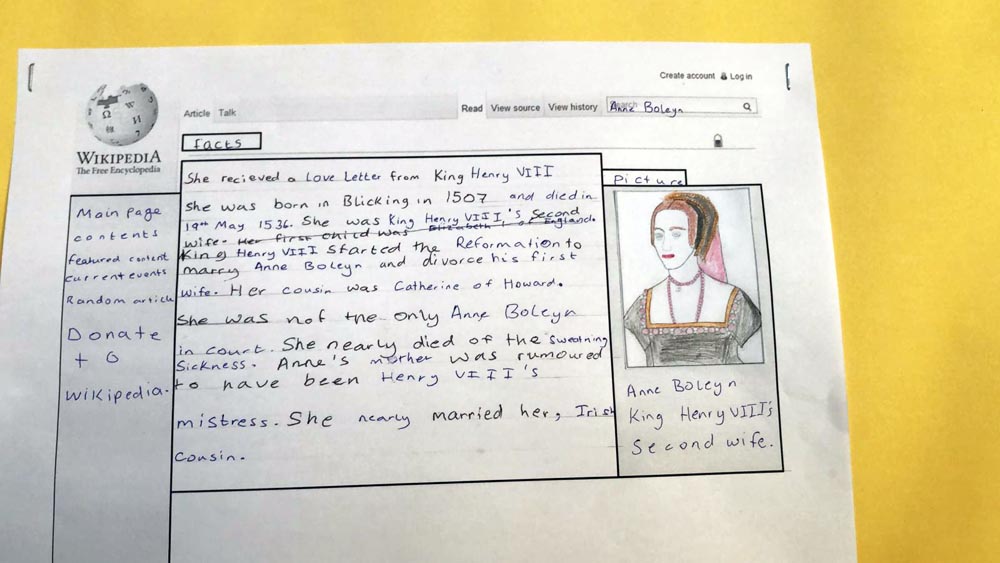 Create account Log in
Article Talk
Read View source View history Anne Boleyn
facts
WIKIPEDIA
The Free Encyclopedia
Main page
contents
featured content
current events
Random article
Donate
to
Wikipedia.
She recieved a Love Letter from King Henry VIII
She was born in Blicking in 1507 and died in
19th May 1536. She was King Henry VIII's second
wife. Her first child was Elizabeth I of England.
King Henry VIII started the Reformation to
marry Anne Boleyn and divorce his first
wife. Her cousin was Catherine of Howard.
She was not the only Anne Boleyn
in court. She nearly died of the sweatning
Sickness. Anne's mother was rumoured
to have been Henry VIII's
mistress. She nearly married her, Irish
cousin.
Picture
Anne Boleyn
King Henry VIII's
Second wife.